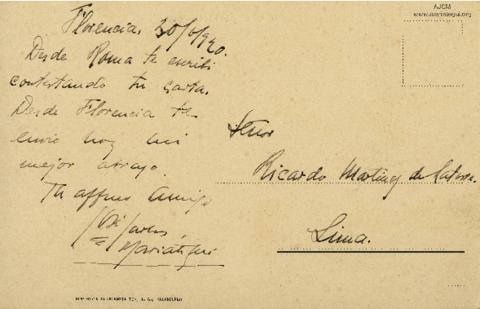 Florencia, 30/6/920.
Desde Roma te escribí
contestando tu carta.
Desde Florencia te
envío hoy mi
mejor abrazo.
Tu affmo amigo
Mariátegui
Señor
Ricardo Martinez de la Torre
Lima.
AJCM
www.mariategui.org